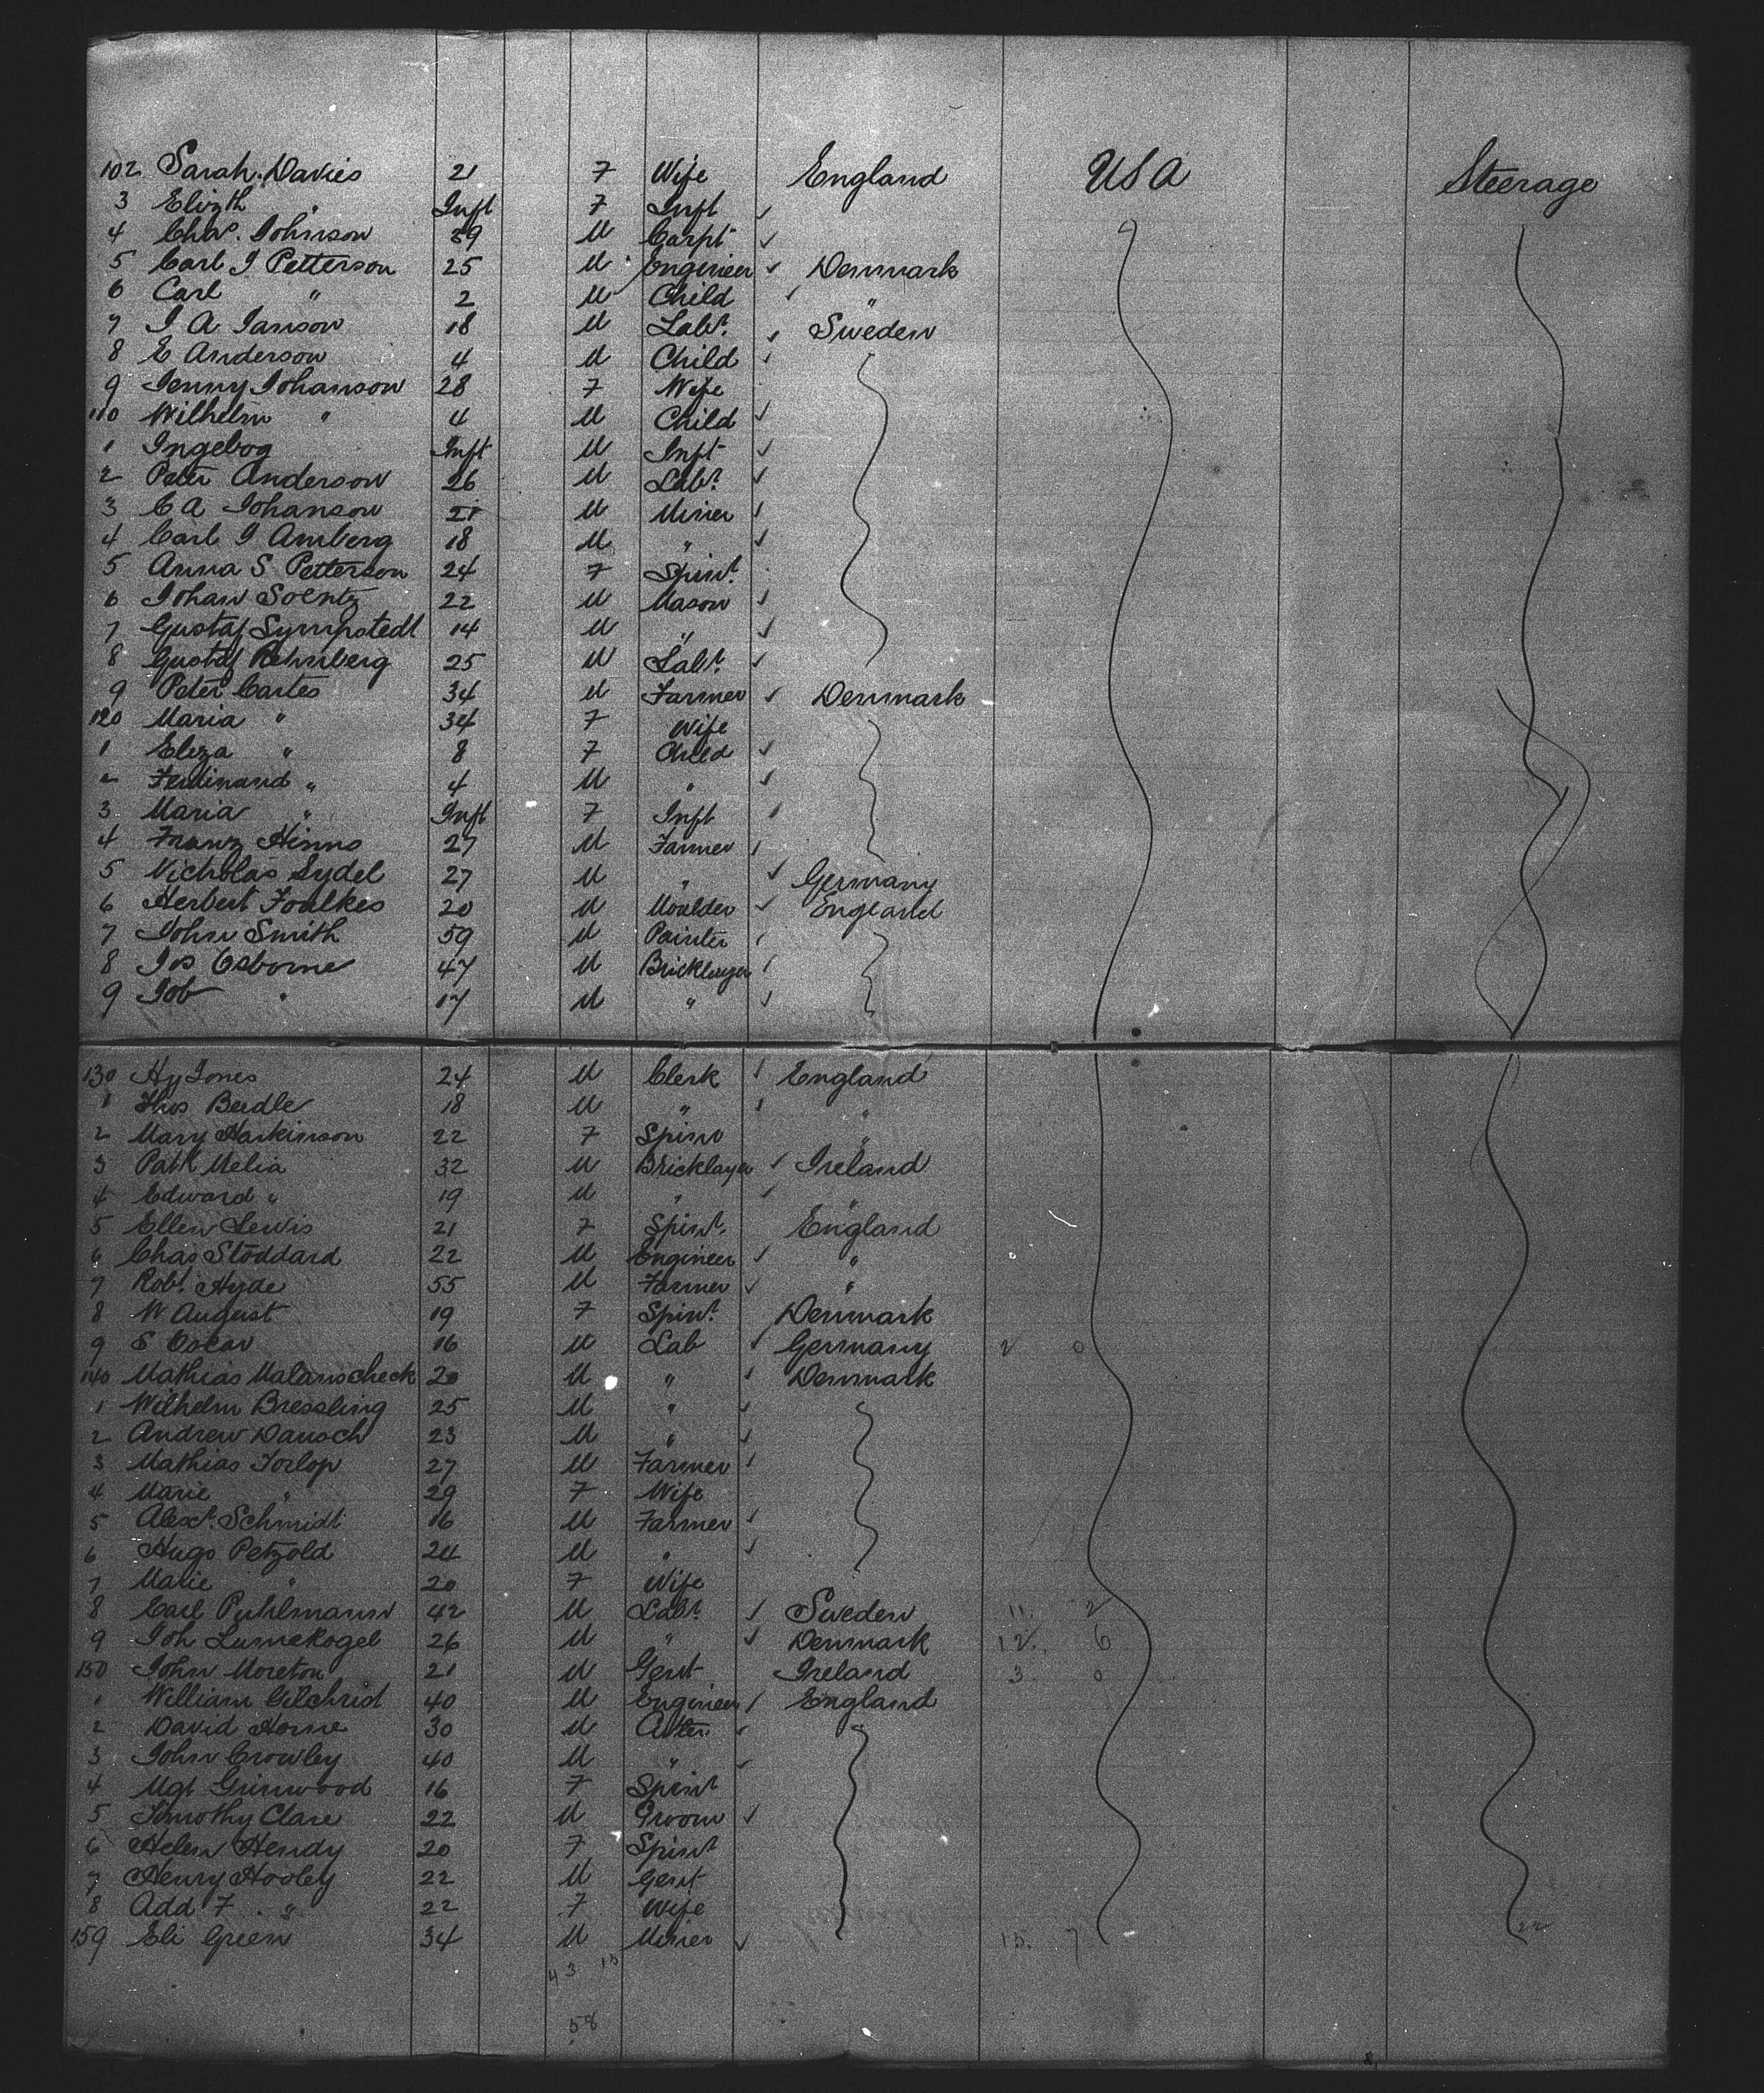 102 Sarah Davies 21 F Wife England USA Steerage
3 Elizth " Inft F Inft ✓
4 Chas. Johnson 39 M Carpt ✓
5 Carl J Petterson 25 M Engineer ✓ Denmark
6 Carl " 2 M Child ✓ "
7 J A Janson 18 M Labr. ✓ Sweden
8 E Anderson 4 M Child ✓
9 Jenny Johanson 28 F Wife
110 Wilhelm " 4 M Child ✓
1 Ingebog Inft M Inft ✓
2 Peter Anderson 26 M Labr. ✓
3 C A Johanson 21 M Miner ✓
4 Carl J Amberg 18 M " ✓
5 Anna S Petterson 24 F Spinr.
6 Johan Soentz 22 M Mason ✓
7 Gustaf Sympstedt 14 M " ✓
8 Gustaf Rehnberg 25 M Labr. ✓
9 Peter Cartes 34 M Farmer ✓ Denmark
120 Maria " 34 F Wife
1 Eliza " 8 F Child ✓
2 Ferdinand " 4 M " ✓
3 Maria " Inft F Inft ✓
4 Franz Hinns 27 M Farmer ✓
5 Nicholas Sydel 27 M " ✓ Germany
6 Herbert Foulkes 20 M Moulder ✓ England
7 John Smith 59 M Painter ✓
8 Jos Osborne 47 M Bricklayer ✓
9 Job " 17 M " ✓
130 Hy Jones 24 M Clerk ✓ England
1 Thos Beedle 18 M " ✓ "
2 Mary Harkinson 22 F Spinr "
3 Patk Melia 32 M Bricklayer ✓ Ireland
4 Edward " 19 M " ✓ "
5 Ellen Lewis 21 F Spinr. England
6 Chas Stoddard 22 M Engineer ✓ "
7 Robt. Hyde 55 M Farmer ✓ "
8 W August 19 F Spinr. Denmark
9 S Oscar 16 M Lab ✓ Germany 2 0
140 Mathias Malanscheck 20 M " ✓ Denmark
1 Wilhelm Bressling 25 M " ✓
2 Andrew Dausch 23 M " ✓
3 Mathias Torlop 27 M Farmer ✓
4 Marie " 29 F Wife
5 Alexr. Schmidt 16 M Farmer ✓
6 Hugo Petzold 24 M " ✓
7 Marie " 20 F Wife
8 Carl Puhlmann 42 M Labr. ✓ Sweden 11. 2
9 Joh Lumekogel 26 M " ✓ Denmark 12. 6
150 John Moreton 21 M Gent Ireland 3 0
1 William Gilchrist 40 M Engineer ✓ England
2 David Horne 30 M ✓ "
3 John Crowley 40 M " ✓
4 Mgt Grinwood 16 F Spinr
5 Timothy Clare 22 M Groom ✓
6 Helen Hendy 20 F Spinr
7 Henry Hooley 22 M Gent
8 Add F. " 22 F Wife
159 Eli Green 34 M Miner ✓ 15. 7 22
43 15
58